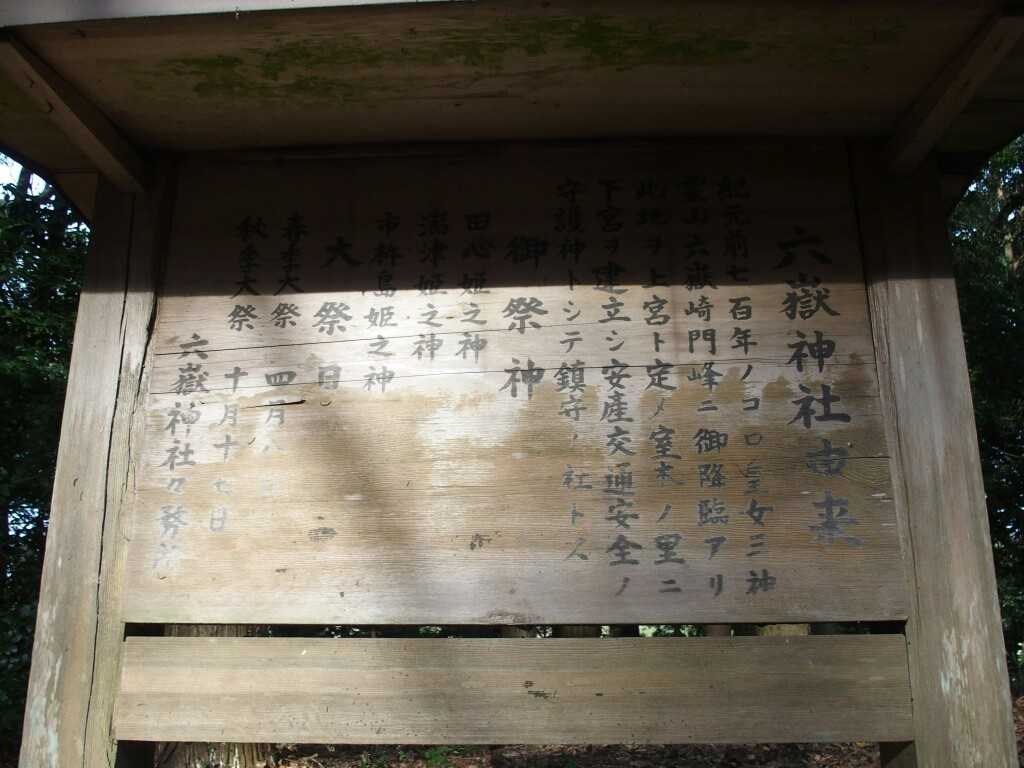 六嶽神社由来
紀元前七百年ノコロ皇女三神
霊山六嶽崎門峰ニ御降臨アリ
此地ヲ上宮ト定メ室木ノ里ニ
下宮ヲ建立シ安産交通安全ノ
守護神トシテ鎮守ノ社トス
御祭神
田心姫之神
湍津姫之神
市杵島姫之神
大祭日
春季大祭 四月八日
秋季大祭 十月十七日
六嶽神社々務所